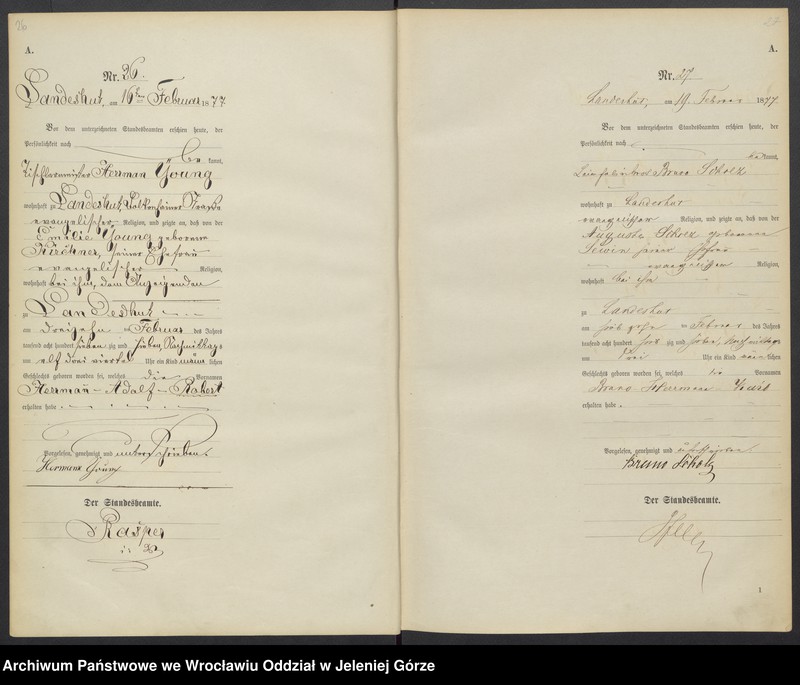 26
A.
Nr. 26.
Landeshut, am 16ten Februar 1877.
Vor dem unterzeichneten Standesbeamten erschien heute, der
Persönlichkeit nach
be kannt,
Tischlermeister Herrman Young
wohnhaft zu Landeshut, Straße
evangelischer Religion, und zeigte an, daß von der
Emilie Young geborenen
Kirchner, seiner Ehefrau
evangelischer Religion,
wohnhaft bei ihm, dem Anzeigenden
zu Landeshut
am dreizehn ten Februar des Jahres
tausend acht hundert sieben zig und sieben, Nachmittags
um elf drei viertel Uhr ein Kind männ lichen
Geschlechts geboren worden sei, welches die Vornamen
Herrman - Adolf - Robert
erhalten habe.
Vorgelesen, genehmigt und unterschrieben.
Hermann Young
Der Standesbeamte.
Rasper
27
A.
Nr. 27
Landeshut, am 19. Februar 1877.
Vor dem unterzeichneten Standesbeamten erschien heute, der
Persönlichkeit nach
be kannt,
Bruno Scholz
wohnhaft zu Landeshut
evangelischer Religion, und zeigte an, daß von der
Auguste Scholz geborenen
seiner Ehefrau
evangelischer Religion,
wohnhaft bei ihm
zu Landeshut
am ten Februar des Jahres
tausend acht hundert zig und sieben, Nachmittags
um drei Uhr ein Kind lichen
Geschlechts geboren worden sei, welches die Vornamen
Bruno Hermann
erhalten habe.
Vorgelesen, genehmigt und unterschrieben.
Bruno Scholz
Der Standesbeamte.
1
Archiwum Państwowe we Wrocławiu Oddział w Jeleniej Górze